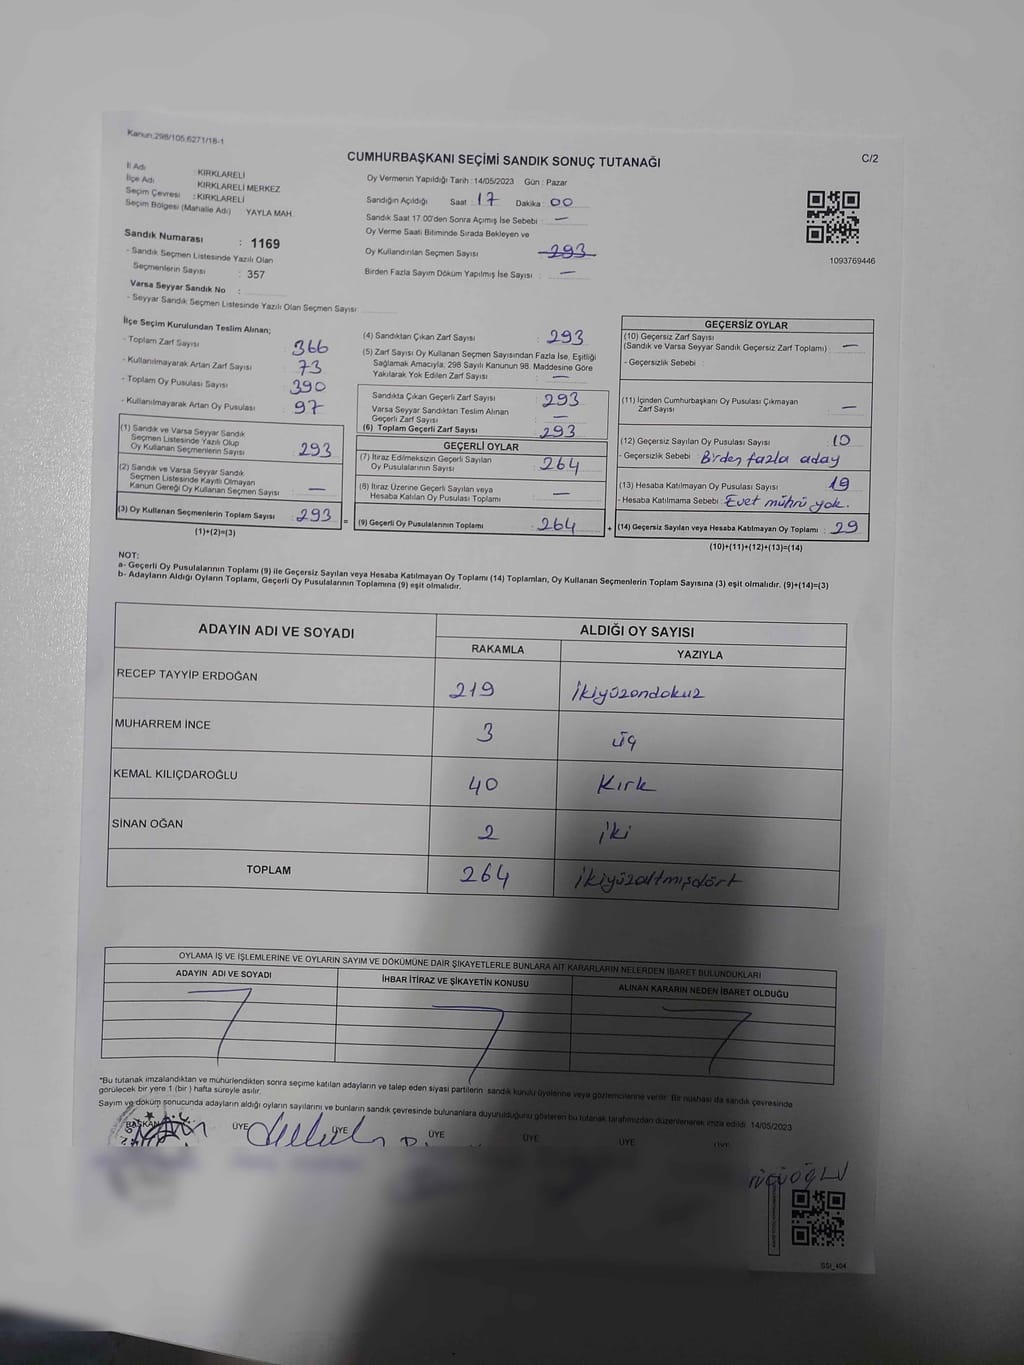 Kanun:298/105,6271/18-1
C/2
CUMHURBAŞKANI SEÇİMİ SANDIK SONUÇ TUTANAĞI
İl Adı : KIRKLARELİ
İlçe Adı KIRKLARELİ MERKEZ
Seçim Çevresi : KIRKLARELİ
Seçim Bölgesi (Mahalle Adı) YAYLA MAH.
Sandık Numarası : 1169
- Sandık Seçmen Listesinde Yazılı Olan
Seçmenlerin Sayısı : 357
Varsa Seyyar Sandık No :
- Seyyar Sandık Seçmen Listesinde Yazılı Olan Seçmen Sayısı
Oy Vermenin Yapıldığı Tarih : 14/05/2023 Gün : Pazar
Sandığın Açıldığı Saat : 17 Dakika : 00
Sandık Saat 17.00'den Sonra Açımış İse Sebebi : —
Oy Verme Saati Bitiminde Sırada Bekleyen ve
Oy Kullandırılan Seçmen Sayısı 293
Birden Fazla Sayım Döküm Yapılmış İse Sayısı : —
1093769446
İlçe Seçim Kurulundan Teslim Alınan;
- Toplam Zarf Sayısı 366
- Kullanılmayarak Artan Zarf Sayısı 73
- Toplam Oy Pusulası Sayısı 390
- Kullanılmayarak Artan Oy Pusulası 97
(1) Sandık ve Varsa Seyyar Sandık
Seçmen Listesinde Yazılı Olup
Oy Kullanan Seçmenlerin Sayısı 293
(2) Sandık ve Varsa Seyyar Sandık
Seçmen Listesinde Kayıtlı Olmayan
Kanun Gereği Oy Kullanan Seçmen Sayısı —
(3) Oy Kullanan Seçmenlerin Toplam Sayısı 293
(1)+(2)=(3)
(4) Sandıktan Çıkan Zarf Sayısı : 293
(5) Zarf Sayısı Oy Kullanan Seçmen Sayısından Fazla İse, Eşitliği
Sağlamak Amacıyla, 298 Sayılı Kanunun 98. Maddesine Göre
Yakılarak Yok Edilen Zarf Sayısı : —
Sandıkta Çıkan Geçerli Zarf Sayısı : 293
Varsa Seyyar Sandıktan Teslim Alınan
Geçerli Zarf Sayısı : —
(6) Toplam Geçerli Zarf Sayısı : 293
GEÇERLİ OYLAR
(7) İtiraz Edilmeksizin Geçerli Sayılan
Oy Pusulalarının Sayısı : 264
(8) İtiraz Üzerine Geçerli Sayılan veya
Hesaba Katılan Oy Pusulası Toplamı : —
= (9) Geçerli Oy Pusulalarının Toplamı : 264
GEÇERSİZ OYLAR
(10) Geçersiz Zarf Sayısı
(Sandık ve Varsa Seyyar Sandık Geçersiz Zarf Toplamı) : —
- Geçersizlik Sebebi :
(11) İçinden Cumhurbaşkanı Oy Pusulası Çıkmayan
Zarf Sayısı : —
(12) Geçersiz Sayılan Oy Pusulası Sayısı : 10
- Geçersizlik Sebebi : Birden fazla aday
(13) Hesaba Katılmayan Oy Pusulası Sayısı : 19
- Hesaba Katılmama Sebebi : Evet mührü yok.
+ (14) Geçersiz Sayılan veya Hesaba Katılmayan Oy Toplamı : 29
(10)+(11)+(12)+(13)=(14)
NOT:
a- Geçerli Oy Pusulalarının Toplamı (9) ile Geçersiz Sayılan veya Hesaba Katılmayan Oy Toplamı (14) Toplamları, Oy Kullanan Seçmenlerin Toplam Sayısına (3) eşit olmalıdır. (9)+(14)=(3)
b- Adayların Aldığı Oyların Toplamı, Geçerli Oy Pusulalarının Toplamına (9) eşit olmalıdır.
ADAYIN ADI VE SOYADI ALDIĞI OY SAYISI
RAKAMLA YAZIYLA
RECEP TAYYİP ERDOĞAN 219 ikiyüzondokuz
MUHARREM İNCE 3 üç
KEMAL KILIÇDAROĞLU 40 Kırk
SİNAN OĞAN 2 iki
TOPLAM 264 ikiyüzaltmışdört
OYLAMA İŞ VE İŞLEMLERİNE VE OYLARIN SAYIM VE DÖKÜMÜNE DAİR ŞİKAYETLERLE BUNLARA AİT KARARLARIN NELERDEN İBARET BULUNDUKLARI
ADAYIN ADI VE SOYADI İHBAR İTİRAZ VE ŞİKAYETİN KONUSU ALINAN KARARIN NEDEN İBARET OLDUĞU
*Bu tutanak imzalandıktan ve mühürlendikten sonra seçime katılan adayların ve talep eden siyasi partilerin sandık kurulu üyelerine veya gözlemcilerine verilir. Bir nüshası da sandık çevresinde
görülecek bir yere 1 (bir ) hafta süreyle asılır.
Sayım ve döküm sonucunda adayların aldığı oyların sayılarını ve bunların sandık çevresinde bulunanlara duyurulduğunu gösteren bu tutanak tarafımızdan düzenlenerek imza edildi. 14/05/2023
BAŞKAN ÜYE ÜYE ÜYE ÜYE ÜYE ÜYE
SSI_404